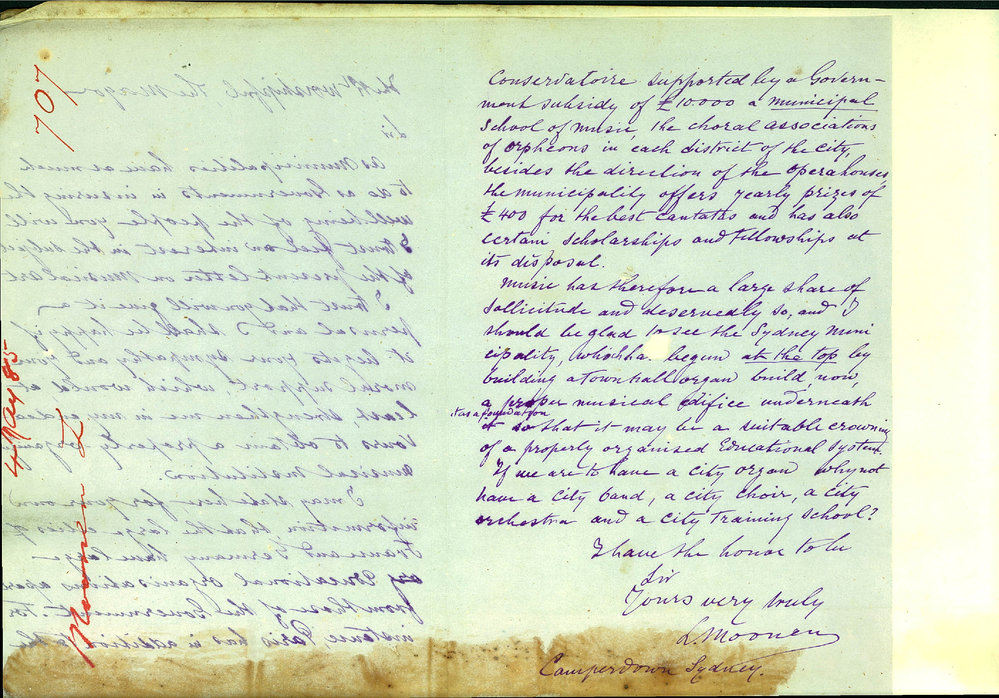 707
4 May 85
Moonen L
Worshipful the Mayor
Sir
As Municipalities have as much
to do as Governments in insuring the
well being of the people you will
I trust feel an interest in the subject
of the present letter on Musical art
I trust that you will give it a
perusal and I shall be happy if
it your sympathy and your
moral support which would at
least strengthen me in my endea
vours to obtain a properly
musical Institution.
I may state here for your own
information that the large cities of
France and Germany have large
Educational Organisations
from those of the Government. For
instance, Paris has in addition to the
Conservatoire supported by a Govern-
ment subsidy of £10000 a municipal
School of music, the choral associations
of orpheons in each district of the city,
besides the direction of the operahouses
the municipality offers yearly prizes of
£400 for the best cantatas and has also
certain scholarships and Fellowships at
its disposal.
Music has therefore a large share of
sollicitude and deservedly so, and I
should be glad to see the Sydney Muni
cipality, which ha begun at the top by
building a Town hall organ build, now,
a proper musical edifice underneath
it as a foundation so that it may be a suitable crowning
of a properly organised Educational System.
If we are to have a city organ why not
have a city band, a city choir, a city
orchestra and a city Training School?
I have the honor to be
Sir
Yours very truly
L. Moonen
Camperdown Sydney.